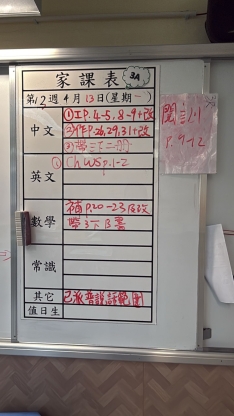 家課表 3A
第12週4月13日(星期一)
中文 ①工P.4-5,8-9+改
②PEP.26,29,31+改
③帶三下二冊
英文 ① Ch WS p.1-2
數學 補P.20-23及改
帶3下B書
常識
其它 已派普說話範圍
值日生
閱言川
P.9-12